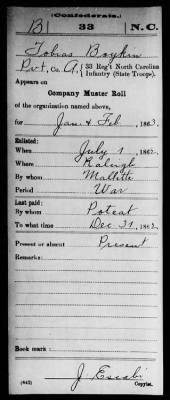 (Confederate.)
B 33 N.C.
Tobias Boykin
Pvt, Co. A, 33 Reg't North Carolina
Infantry (State Troops).
Appears on
Company Muster Roll
of the organization named above,
for Jan & Feb, 1863.
Enlisted:
When July 1, 1862.
Where Raleigh
By whom Mallette
Period War
Last paid:
By whom Poteat
To what time Dec 31, 1862.
Present or absent Present
Remarks:
Book mark:
(642) J.
Copyist.